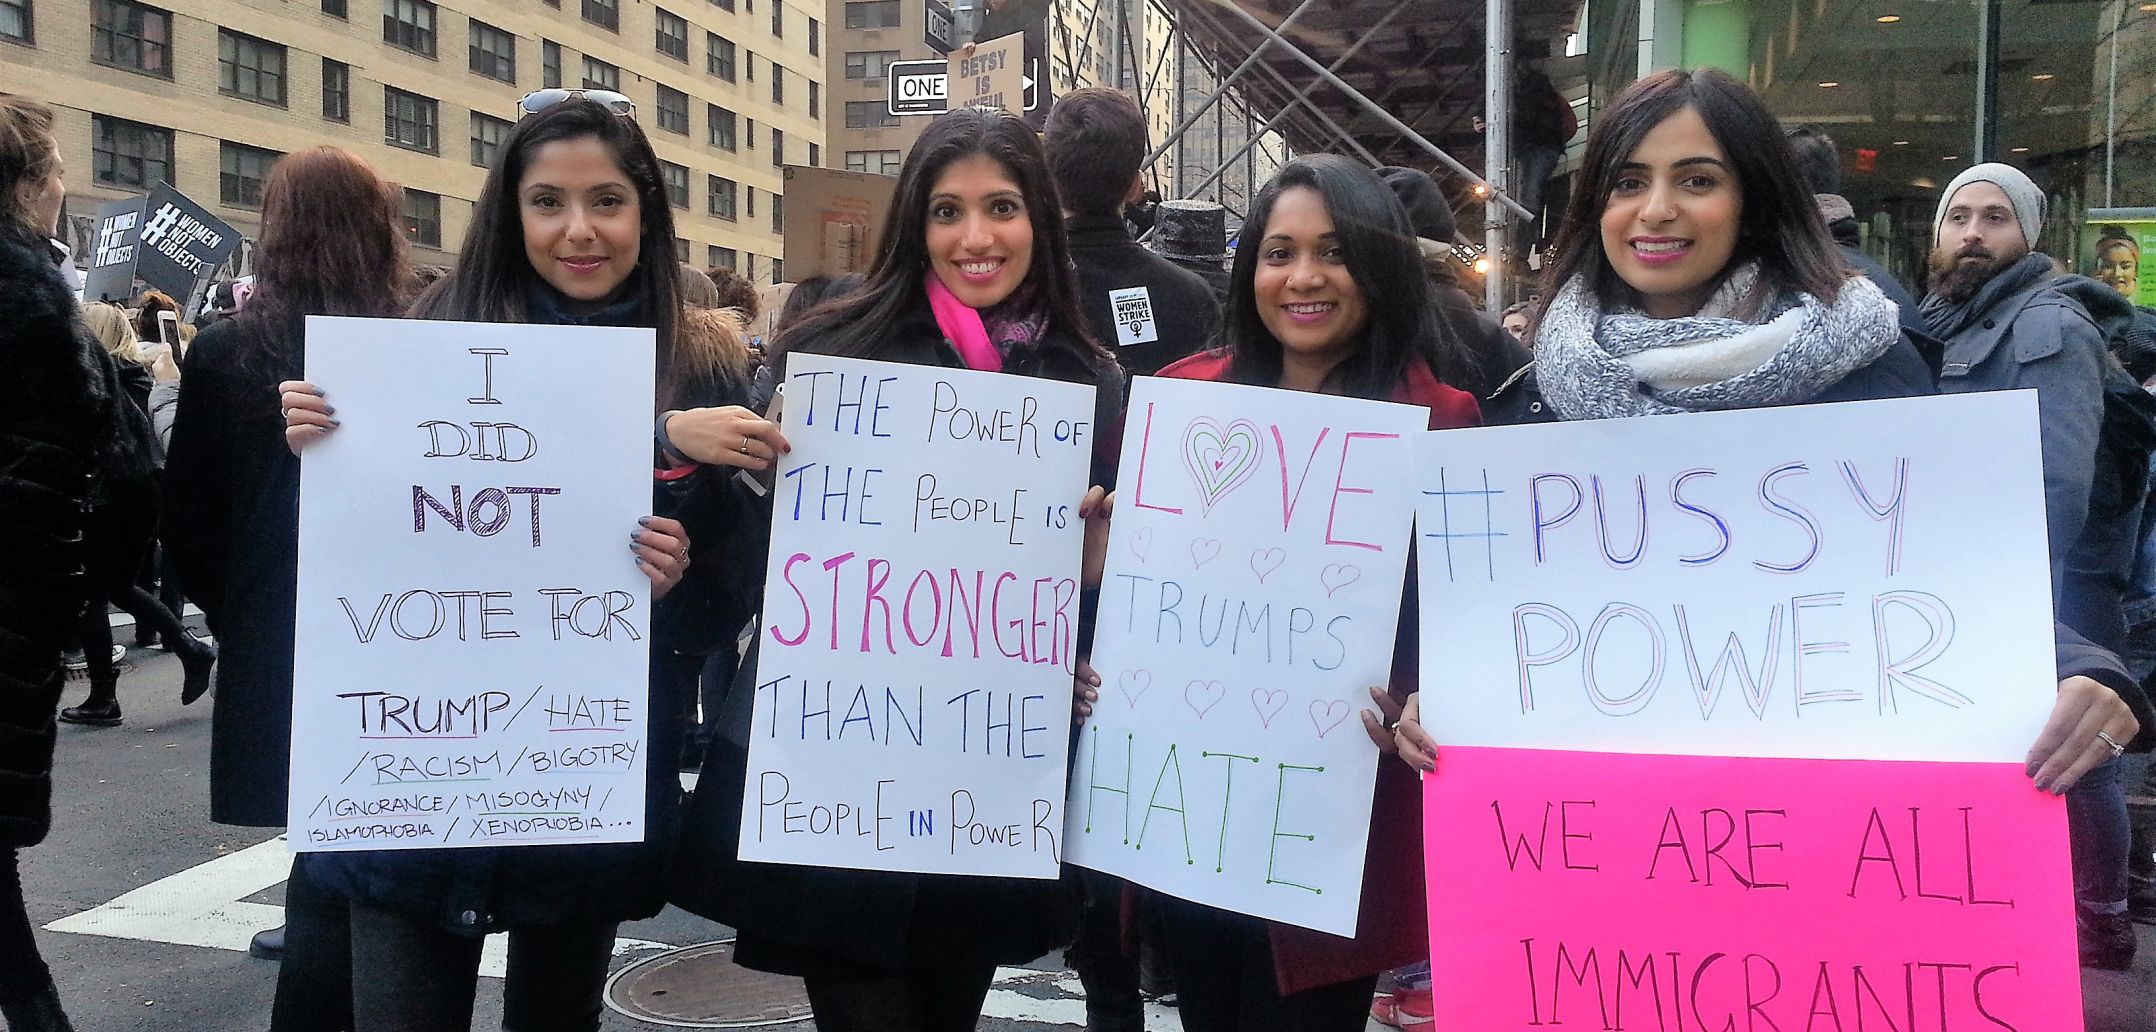 ONE
ONE
BETSY
IS
#WOMEN
NOT
OBJECTS
#WOMEN
NOT
OBJECTS
WOMEN
STRIKE
I
DID
NOT
VOTE FOR
TRUMP/HATE
/RACISM/BIGOTRY
/IGNORANCE/MISOGYNY/
ISLAMOPHOBIA/XENOPHOBIA...
THE POWER OF
THE PEOPLE IS
STRONGER
THAN THE
PEOPLE IN POWER
LOVE
TRUMPS
HATE
#PUSSY
POWER
WE ARE ALL
IMMIGRANTS